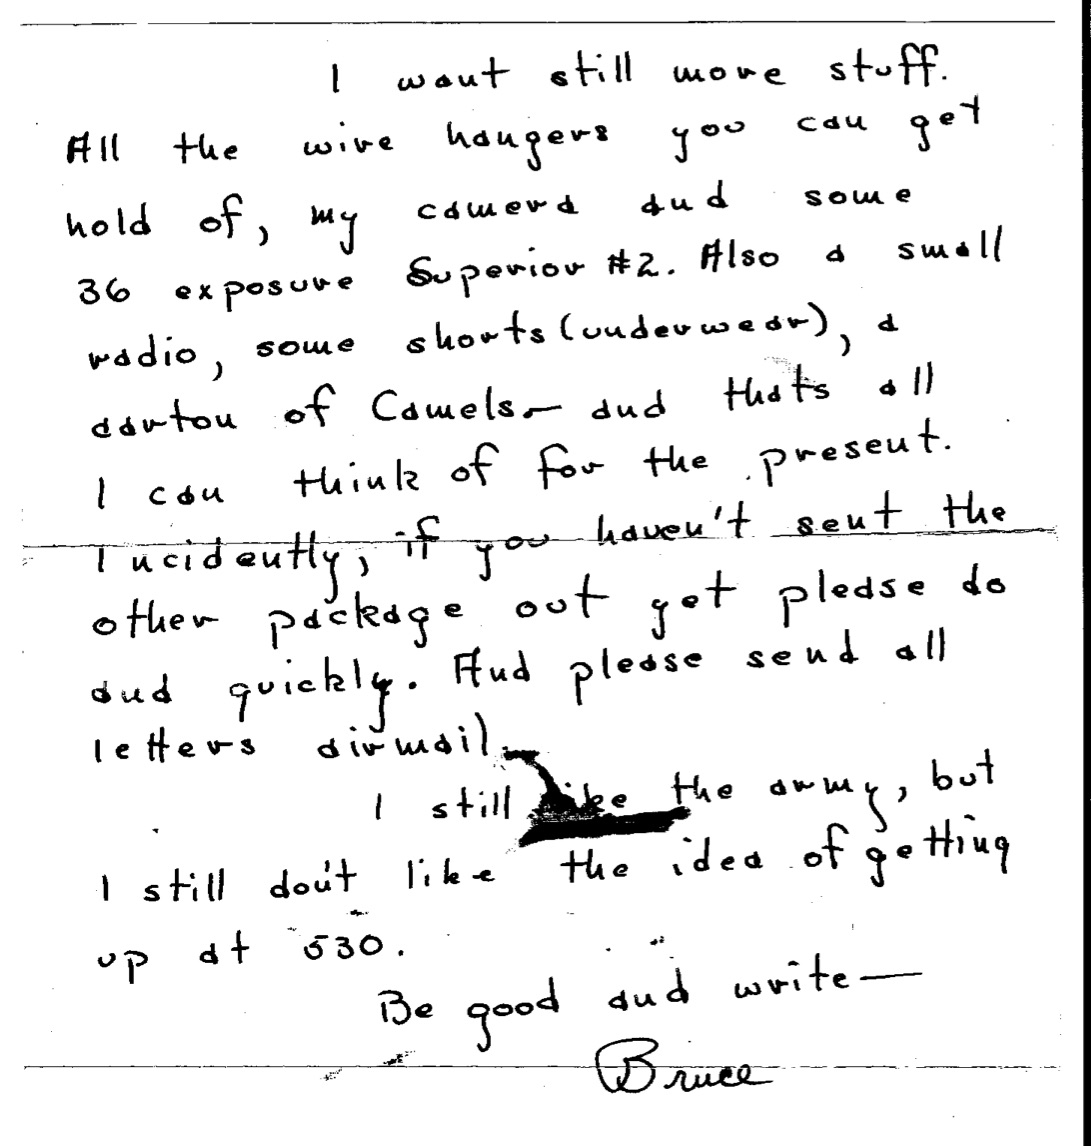 I want still more stuff.
All the wire hangers you can get
hold of, my camera and some
36 exposure Superior #2. Also a small
radio, some shorts (underwear), a
carton of Camels— and thats all
I can think of for the present.
Incidently, if you haven't sent the
other package out yet please do
and quickly. And please send all
letters airmail.
I still like the army, but
I still don't like the idea of getting
up at 530.
Be good and write—
Bruce